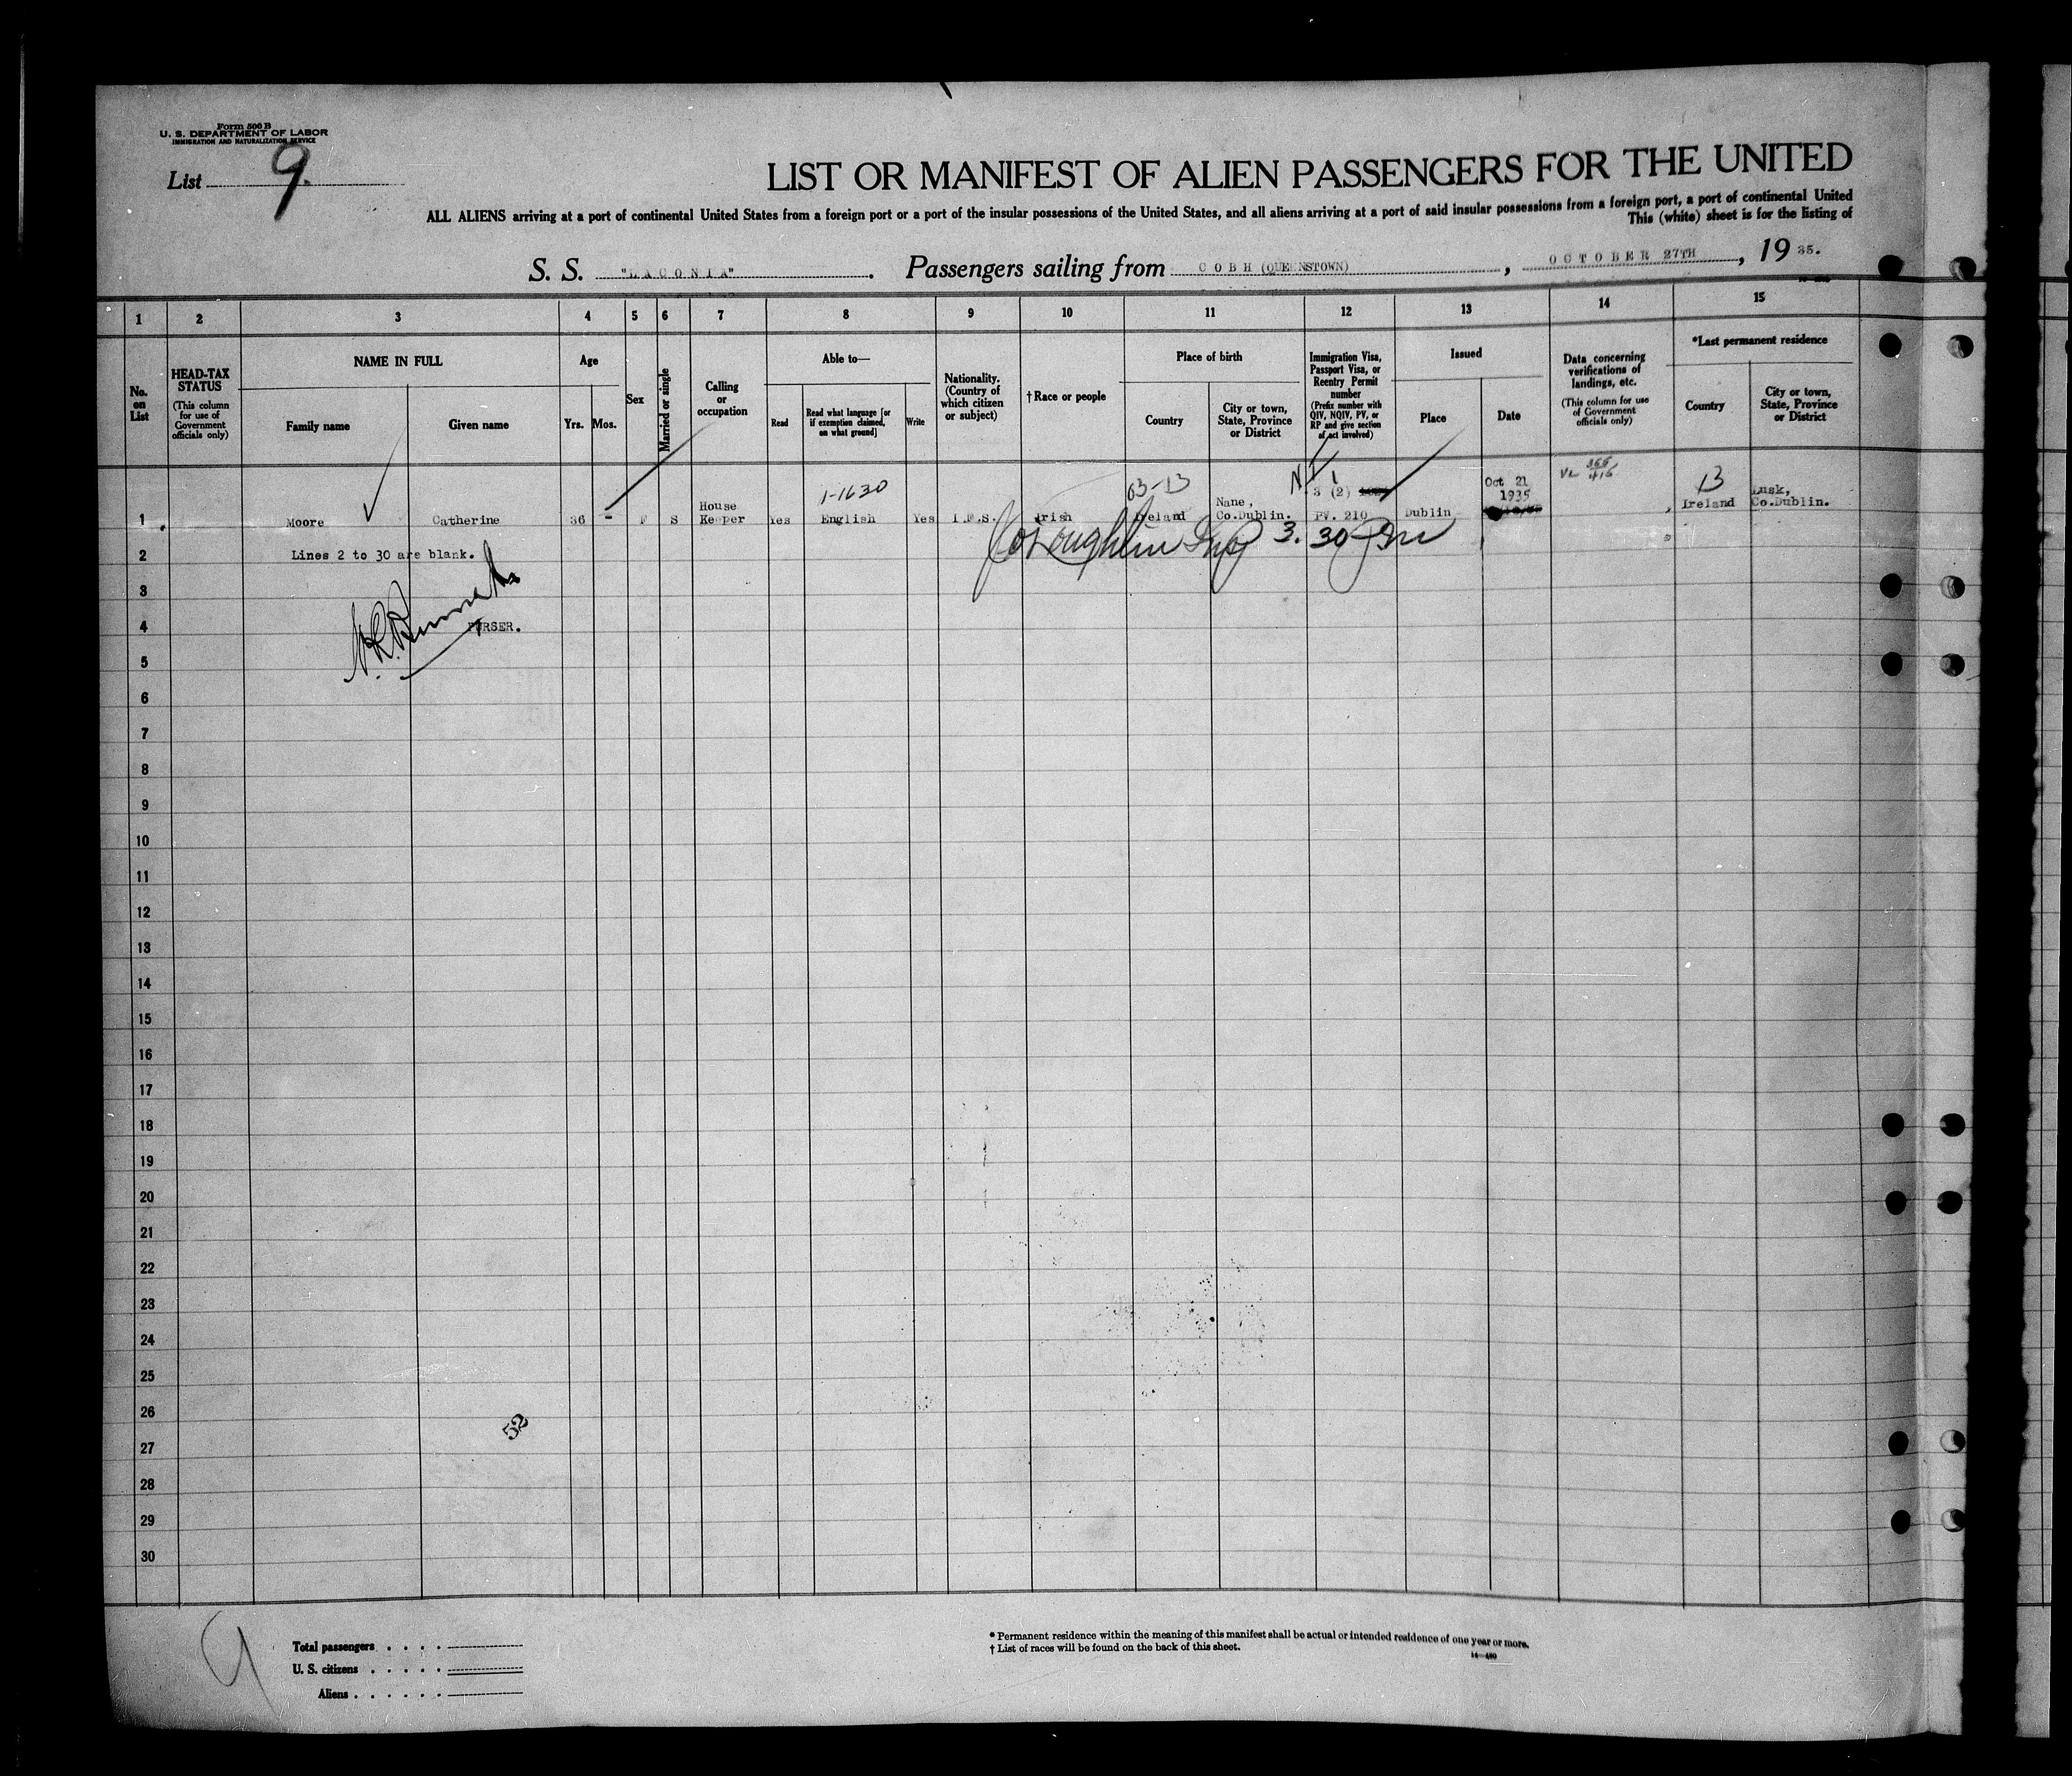 Form 500 B
U. S. DEPARTMENT OF LABOR
IMMIGRATION AND NATURALIZATION SERVICE
List 9.
LIST OR MANIFEST OF ALIEN PASSENGERS FOR THE UNITED
ALL ALIENS arriving at a port of continental United States from a foreign port or a port of the insular possessions of the United States, and all aliens arriving at a port of said insular possessions from a foreign port, a port of continental United
This (white) sheet is for the listing of
S. S. "LACONIA". Passengers sailing from COBH (QUEENSTOWN), OCTOBER 27TH, 19 35.
1 2 3 4 5 6 7 8 9 10 11 12 13 14 15
No. on List
HEAD-TAX STATUS
(This column for use of Government officials only)
NAME IN FULL
Family name
Given name
Age
Yrs.
Mos.
Sex
Married or single
Calling or occupation
Able to—
Read
Read what language [or if exemption claimed, on what ground]
Write
Nationality. (Country of which citizen or subject)
†Race or people
Place of birth
Country
City or town, State, Province or District
Immigration Visa, Passport Visa, or Reentry Permit number
(Prefix number with QIV, NQIV, PV, or RP and give section of act involved)
Issued
Place
Date
Data concerning verifications of landings, etc.
(This column for use of Government officials only)
*Last permanent residence
Country
City or town, State, Province or District
1-1630
03-13
3 (2)
Oct 21
1935
13
1 Moore Catherine 36 - F S House Keeper Yes English Yes I.F.S. Irish Ireland Nane, Co.Dublin. PV. 210 Dublin Ireland Lusk, Co.Dublin.
3. 30
2 Lines 2 to 30 are blank.
3
4 PURSER.
5
6
7
8
9
10
11
12
13
14
15
16
17
18
19
20
21
22
23
24
25
26
52
27
28
29
30
9
Total passengers
U. S. citizens
Aliens
* Permanent residence within the meaning of this manifest shall be actual or intended residence of one year or more.
† List of races will be found on the back of this sheet.
14—480